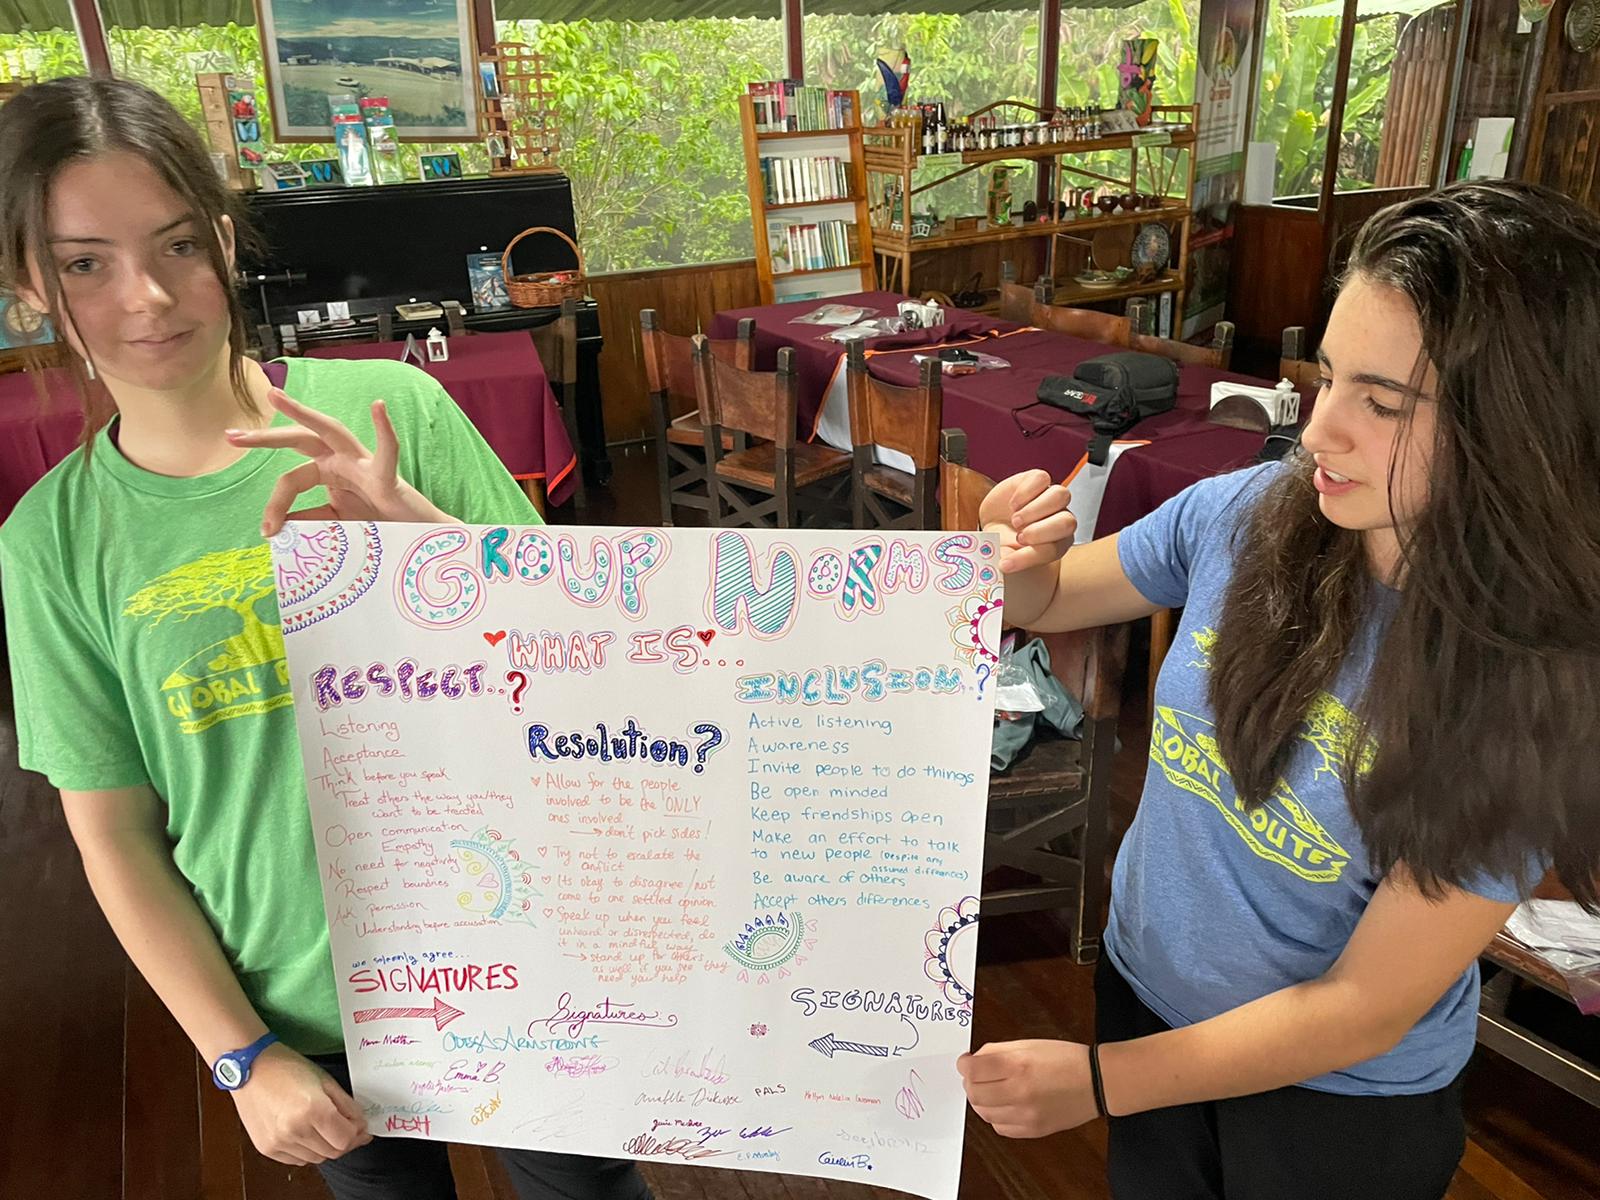 GROUP NORMS:
WHAT IS...
RESPECT..?
Listening
Acceptance
Think before you speak
Treat others the way you/they
want to be treated
Open communication
Empathy
No need for negativity
Respect boundries
Ask permission
Understanding before accusation
Resolution?
Allow for the people
involved to be the "ONLY
ones involved
→ don't pick sides!
Try not to escalate the
conflict
Its okay to disagree/not
come to one settled opinion
Speak up when you feel
unheard or disrespected, do
it in a mindful way
→ stand up for others
as well if you see they
need you help
INCLUSION..?
Active listening
Awareness
Invite people to do things
Be open minded
Keep friendships open
Make an effort to talk
to new people (despite any
assumed differences)
Be aware of others
Accept others differences
we solemnly agree...
SIGNATURES
Signatures:
SIGNATURES
ARMSTRONG
Emma B.
PALS
NOAH
Caitlin B.
GLOBAL R
GLOBAL ROUTES